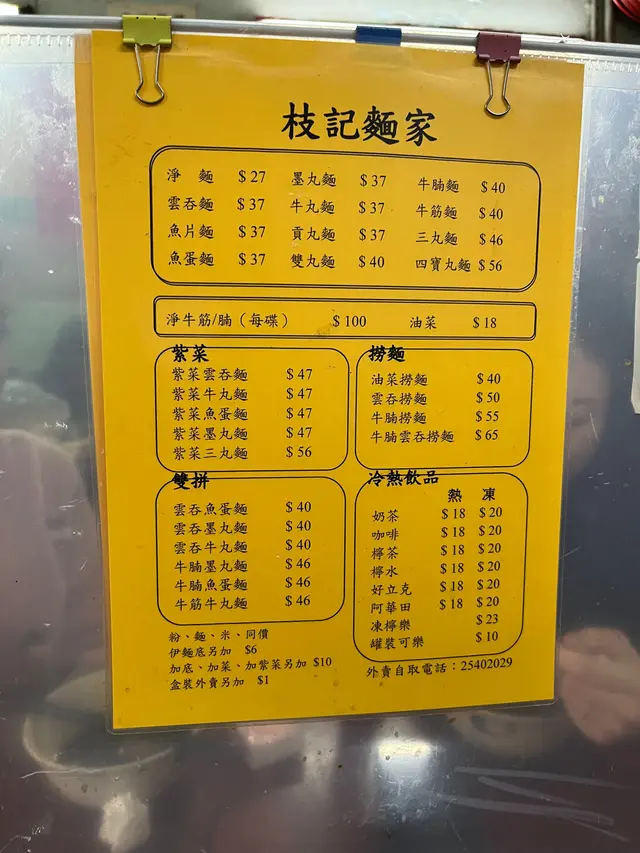 枝記麵家
淨 麵 $27 墨丸麵 $37 牛腩麵 $40
雲吞麵 $37 牛丸麵 $37 牛筋麵 $40
魚片麵 $37 貢丸麵 $37 三丸麵 $46
魚蛋麵 $37 雙丸麵 $40 四寶丸麵 $56
淨牛筋/腩（每碟） $100 油菜 $18
紫菜
紫菜雲吞麵 $47
紫菜牛丸麵 $47
紫菜魚蛋麵 $47
紫菜墨丸麵 $47
紫菜三丸麵 $56
撈麵
油菜撈麵 $40
雲吞撈麵 $50
牛腩撈麵 $55
牛腩雲吞撈麵 $65
雙拼
雲吞魚蛋麵 $40
雲吞墨丸麵 $40
雲吞牛丸麵 $40
牛腩墨丸麵 $46
牛腩魚蛋麵 $46
牛筋牛丸麵 $46
冷熱飲品
熱 凍
奶茶 $18 $20
咖啡 $18 $20
檸茶 $18 $20
檸水 $18 $20
好立克 $18 $20
阿華田 $18 $20
凍檸樂 $23
罐裝可樂 $10
粉、麵、米、同價
伊麵底另加 $6
加底、加菜、加紫菜另加 $10
盒裝外賣另加 $1
外賣自取電話：25402029